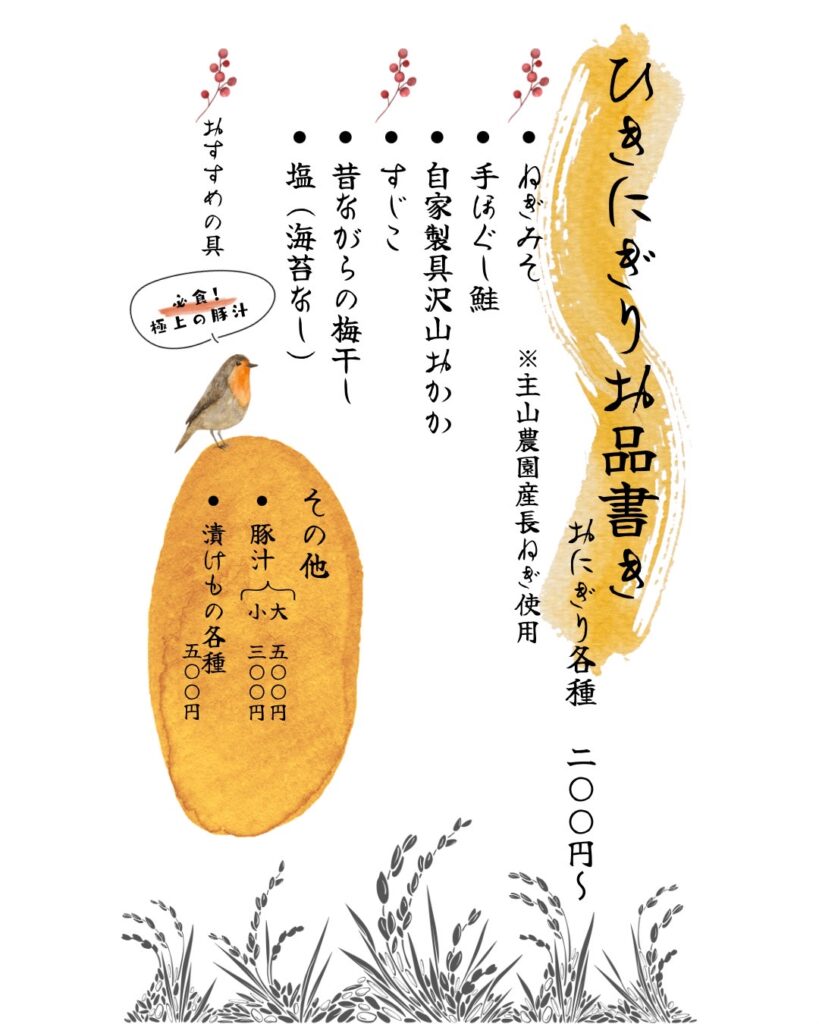 ひきにぎりお品書き
おにぎり各種 二〇〇円〜
● ねぎみそ ※主山農園産長ねぎ使用
● 手ほぐし鮭
● 自家製具沢山おかか
● すじこ
● 昔ながらの梅干し
● 塩（海苔なし）
おすすめの具
必食！
極上の豚汁
その他
● 豚汁
大 五〇〇円
小 三〇〇円
● 漬けもの各種
五〇〇円